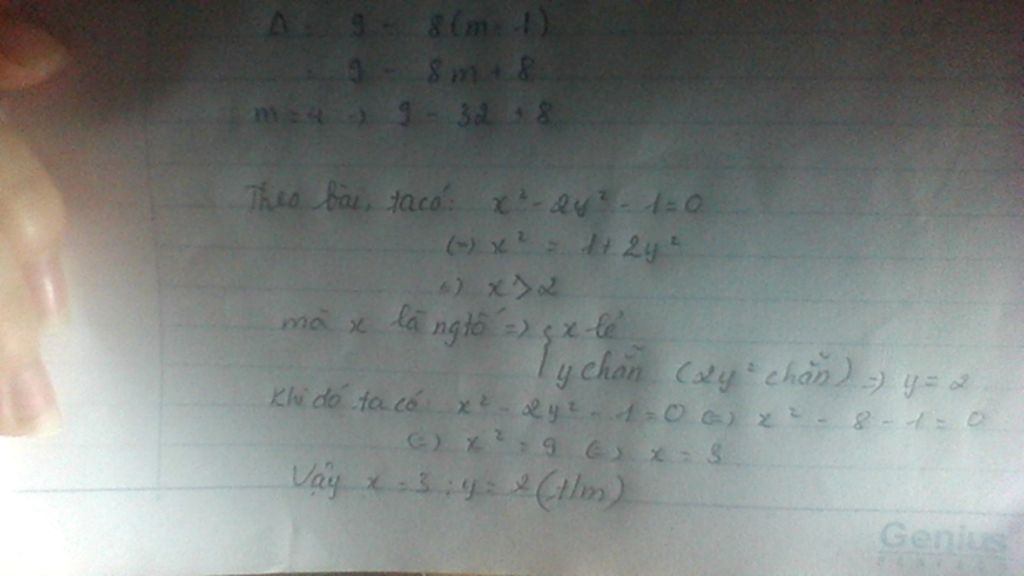 Δ = 9 - 8(m-1)
= 9 - 8m + 8
m = 4 => 9 - 32 + 8
Theo bài, ta có: x² - 2y² - 1 = 0
(=) x² = 1 + 2y²
(=) x > 2
mà x là ngtố => { x lẻ
y chẵn (2y² chẵn) => y = 2
Khi đó ta có: x² - 2y² - 1 = 0 (=) x² - 8 - 1 = 0
(=) x² = 9 (=) x = 3
Vậy x = 3 ; y = 2 (t/m)
Genius